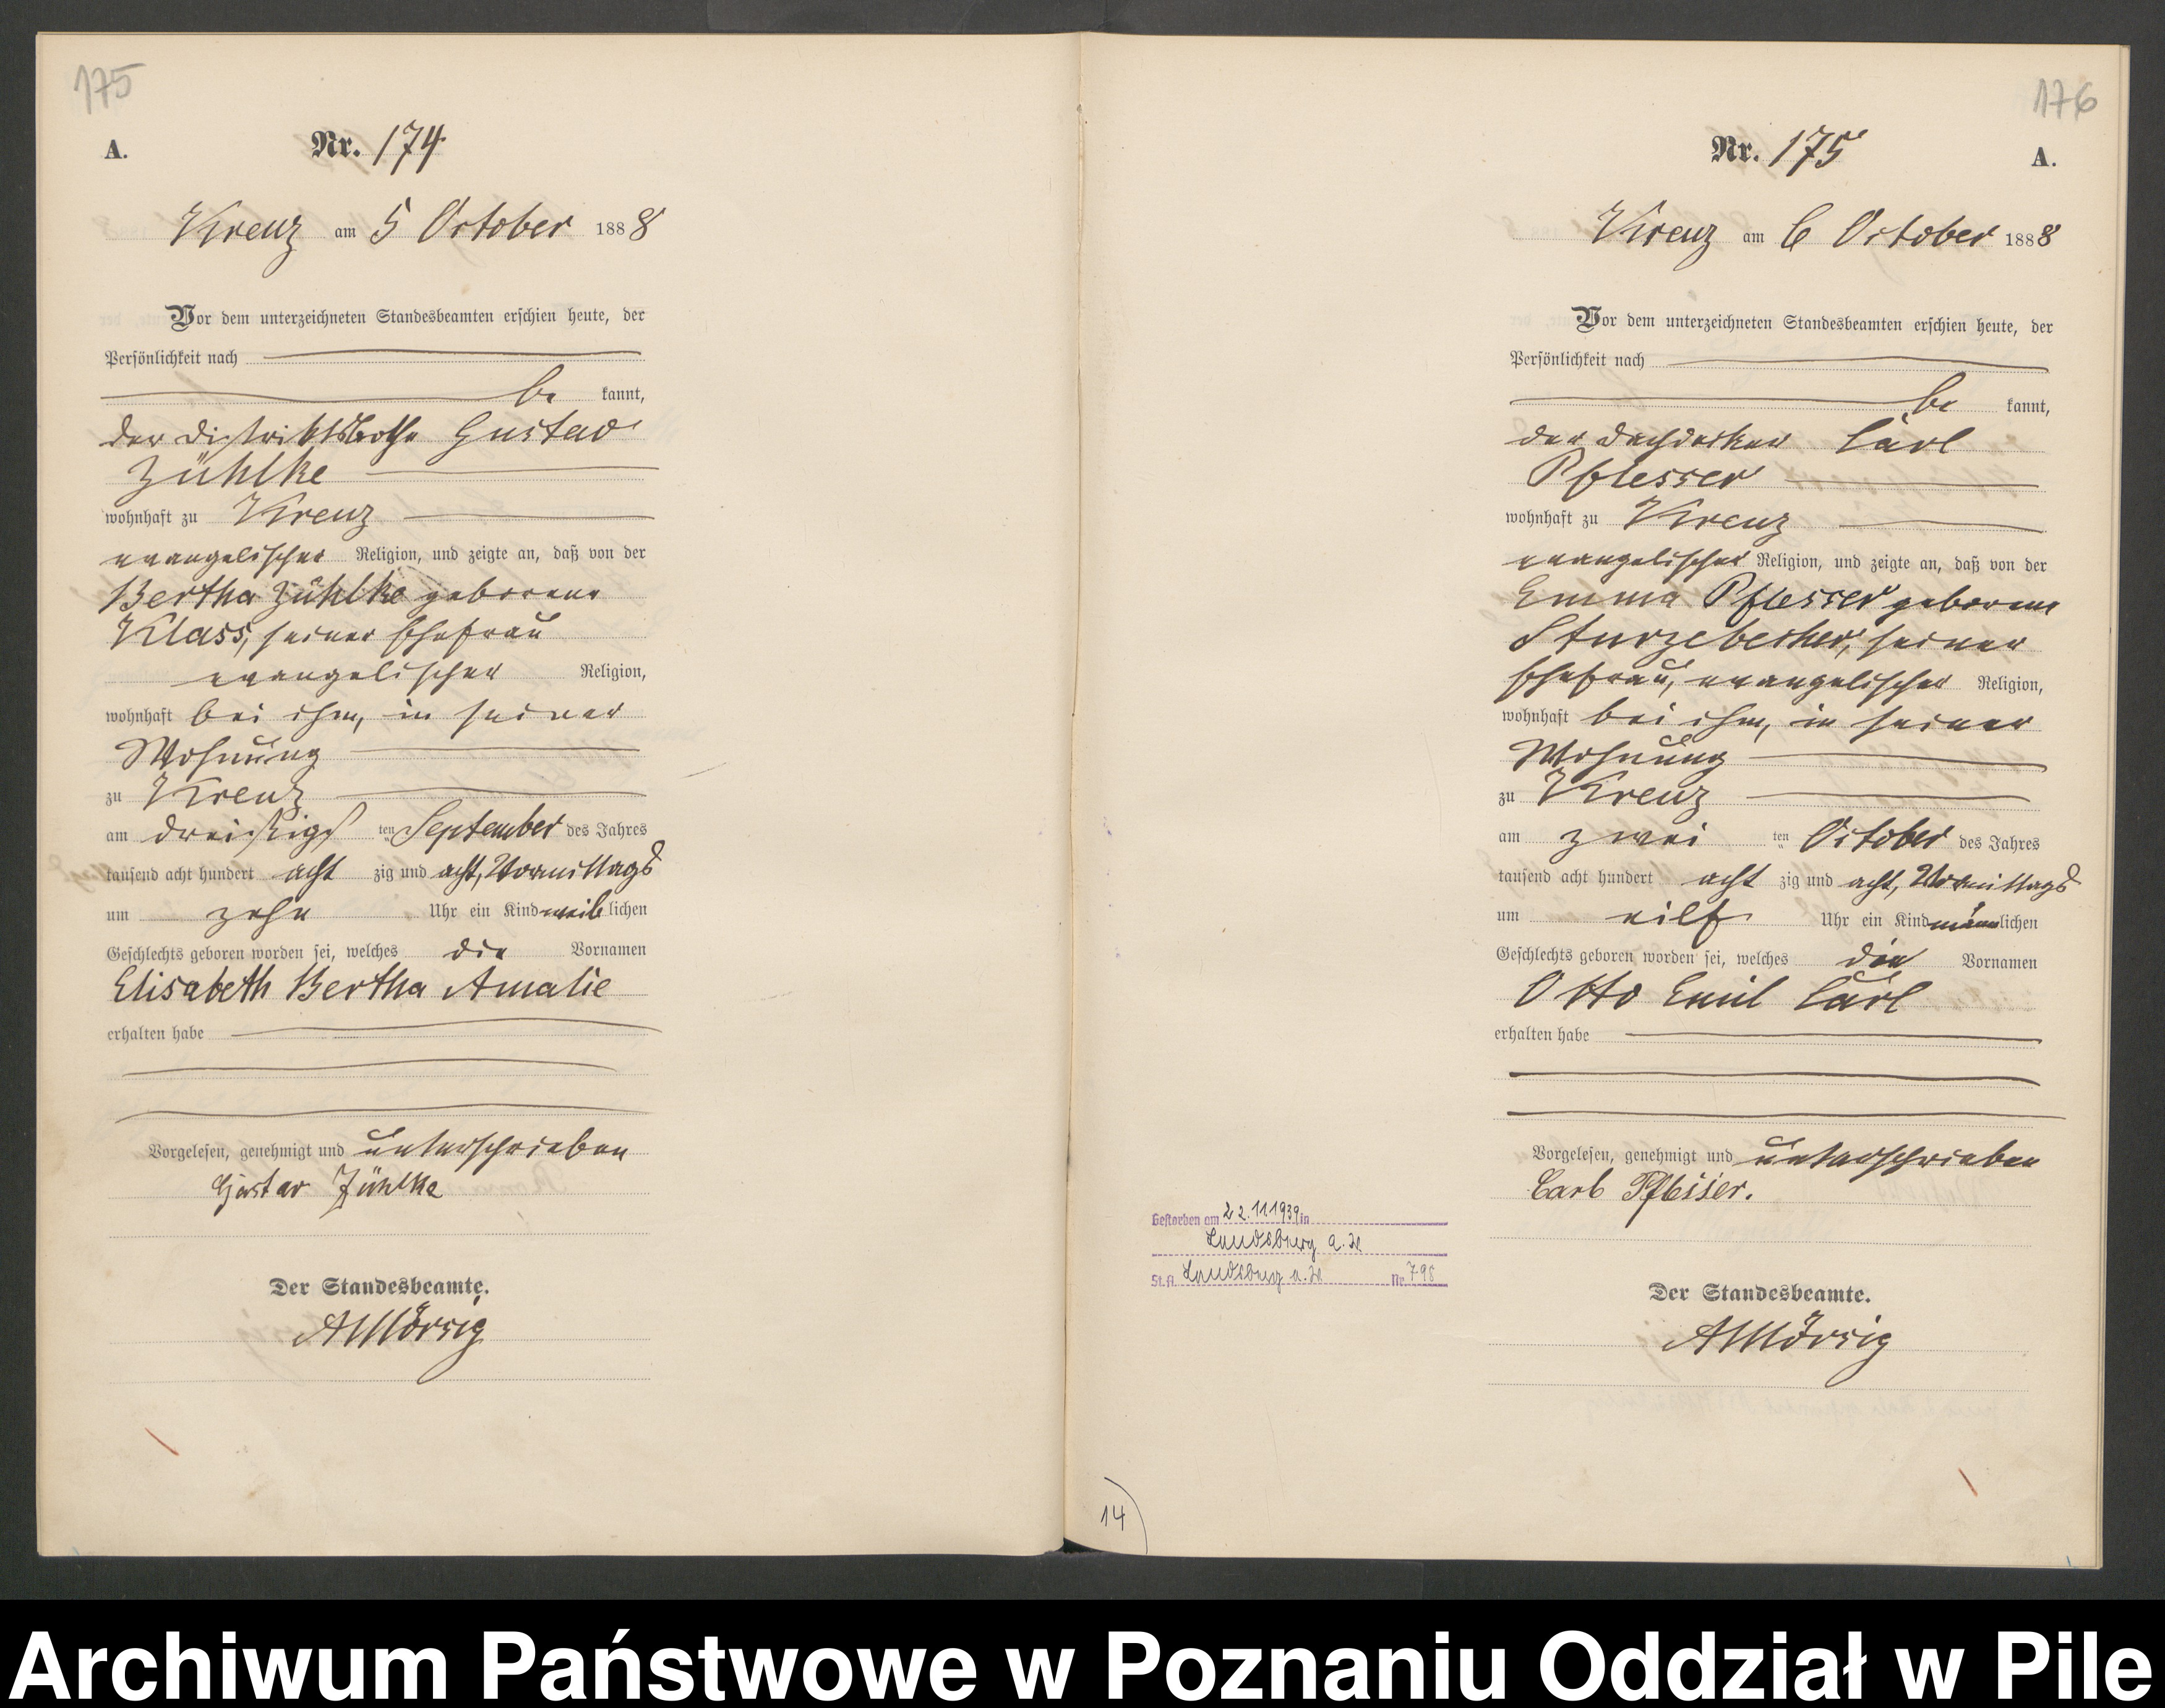 175
A.
Nr. 174
Kreuz am 5 October 1888
Vor dem unterzeichneten Standesbeamten erschien heute, der
Persönlichkeit nach
be kannt,
der Distriktsbothe Gustav
Zühlke
wohnhaft zu Kreuz
evangelischer Religion, und zeigte an, daß von der
Bertha Zühlke geborene
Klass, seiner Ehefrau
evangelischer Religion,
wohnhaft bei ihm, in seiner
Wohnung
zu Kreuz
am dreißigst ten September des Jahres
tausend acht hundert acht zig und acht, Vormittags
um zehn Uhr ein Kind weib lichen
Geschlechts geboren worden sei, welches die Vornamen
Elisabeth Bertha Amalie
erhalten habe
Vorgelesen, genehmigt und unterschrieben
Gustav Zühlke
Der Standesbeamte.
176
Nr. 175
A.
Kreuz am 6 October 1888
Vor dem unterzeichneten Standesbeamten erschien heute, der
Persönlichkeit nach
be kannt,
der Dachdecker Carl
Pflesser
wohnhaft zu Kreuz
evangelischer Religion, und zeigte an, daß von der
Emma Pflesser geborene
Sturzebecher, seiner
Ehefrau, evangelischer Religion,
wohnhaft bei ihm, in seiner
Wohnung
zu Kreuz
am zwei ten October des Jahres
tausend acht hundert acht zig und acht, Vormittags
um eilf Uhr ein Kind männ lichen
Geschlechts geboren worden sei, welches die Vornamen
Otto Emil Carl
erhalten habe
Vorgelesen, genehmigt und unterschrieben
Carl Pflesser.
Der Standesbeamte.
Gestorben am 22.11.1939 in
Landsberg a. W
St.A. Landsberg a. W Nr. 798
14
Archiwum Państwowe w Poznaniu Oddział w Pile